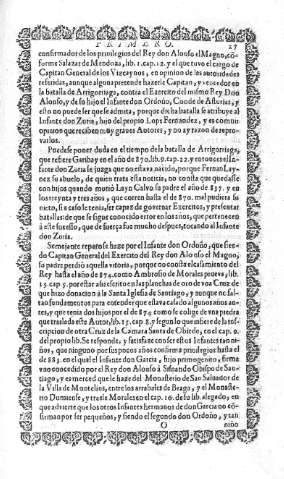 PRIMERO. 27
confirmador de los privilegios del Rey don Alonso el Magno, cõ-
forme Salazar de Mendoza, lib. 1. cap. 12. y el que tuvo el cargo de
Capitan General de los Vizcaynos, en opinion de las autoridades
referidas, aunque alguna pretende hazerle Capitan, y vencedor en
la batalla de Arrigorriaga, contra el Exercito del mismo Rey Don
Alonso, y de su hijo el Infante don Ordoño, Conde de Asturias, y
ello no puede ser que se admita, porque dicha batalla se atribuye al
Infante don Zuria, hijo del proprio Lope Fernandez, y es comun
opinion que reciben muy graves Autores, y no ay razon de repro-
varlos.
Puedese poner duda en el tiempo de la batalla de Arrigorriaga,
que refiere Garibay en el año de 870. lib. 9. cap. 22. y entonces el In-
fante don Zuria se juzga que no estava nacido, porque Fernan Lay-
nez su abuelo, de quien trata esta noticia, no consta que quedasse
con hijos quando murió Layn Calvo su padre el año de 837. y en
los treynta y tres años, que corren hasta el de 870. mal pudiera su
nieto, si acaso le tenia, ser capaz de governar Exercitos, y presentar
batallas de que se sigue conocido error en los años, que pertenecen
á este sucesso, que de fuerça fue mucho despues, tocando al Infante
don Zuria.
Semejente reparo se haze por el Infante don Ordoño, que sien-
do Capitan General del Exercito del Rey don Alonso el Magno,
su padre perdió aquella vitoria, porque no consta el casamiento del
Rey hasta el año de 874. como Ambrosio de Morales prueva, lib.
15. cap. 5. por estar assi escrito en las planchas de oro de una Cruz de
que hizo donacion á la Santa Iglesia de Santiago, y aunque no fal-
tan fundamentos para entender que estava casado algunos años an-
tes, y que tenia dos hijos por el de 874 como se colige de una piedra
que traslada este Autor, lib. 15. cap. 8. y segun lo que infiere de la ins-
cripcion de otra Cruz de la Camara Santa de Oviedo, en el cap. 9.
del proprio lib. Se responde, y satisface con ser estos Infantes tan ni-
ños, que ninguno por sus pocos años confirma privilegios hasta el
de 885. en el qual el Infante don Garcia, hijo primogenito, firma
uno concedido por el Rey don Alonso à Sisnando Obispo de San-
tiago, y en merced que le haze del Monasterio de San Salvador de
la Villa de Montelios, entre los arrabales de Braga, y el Monaste-
rio Dumiense, y trae le Morales en el cap. 16. de su lib. alegado, en
que advierte que los otros Infantes hermanos de don Garcia no cõ-
firman por ser pequeños, y siendo el segundo don Ordoño, y tan
O niño